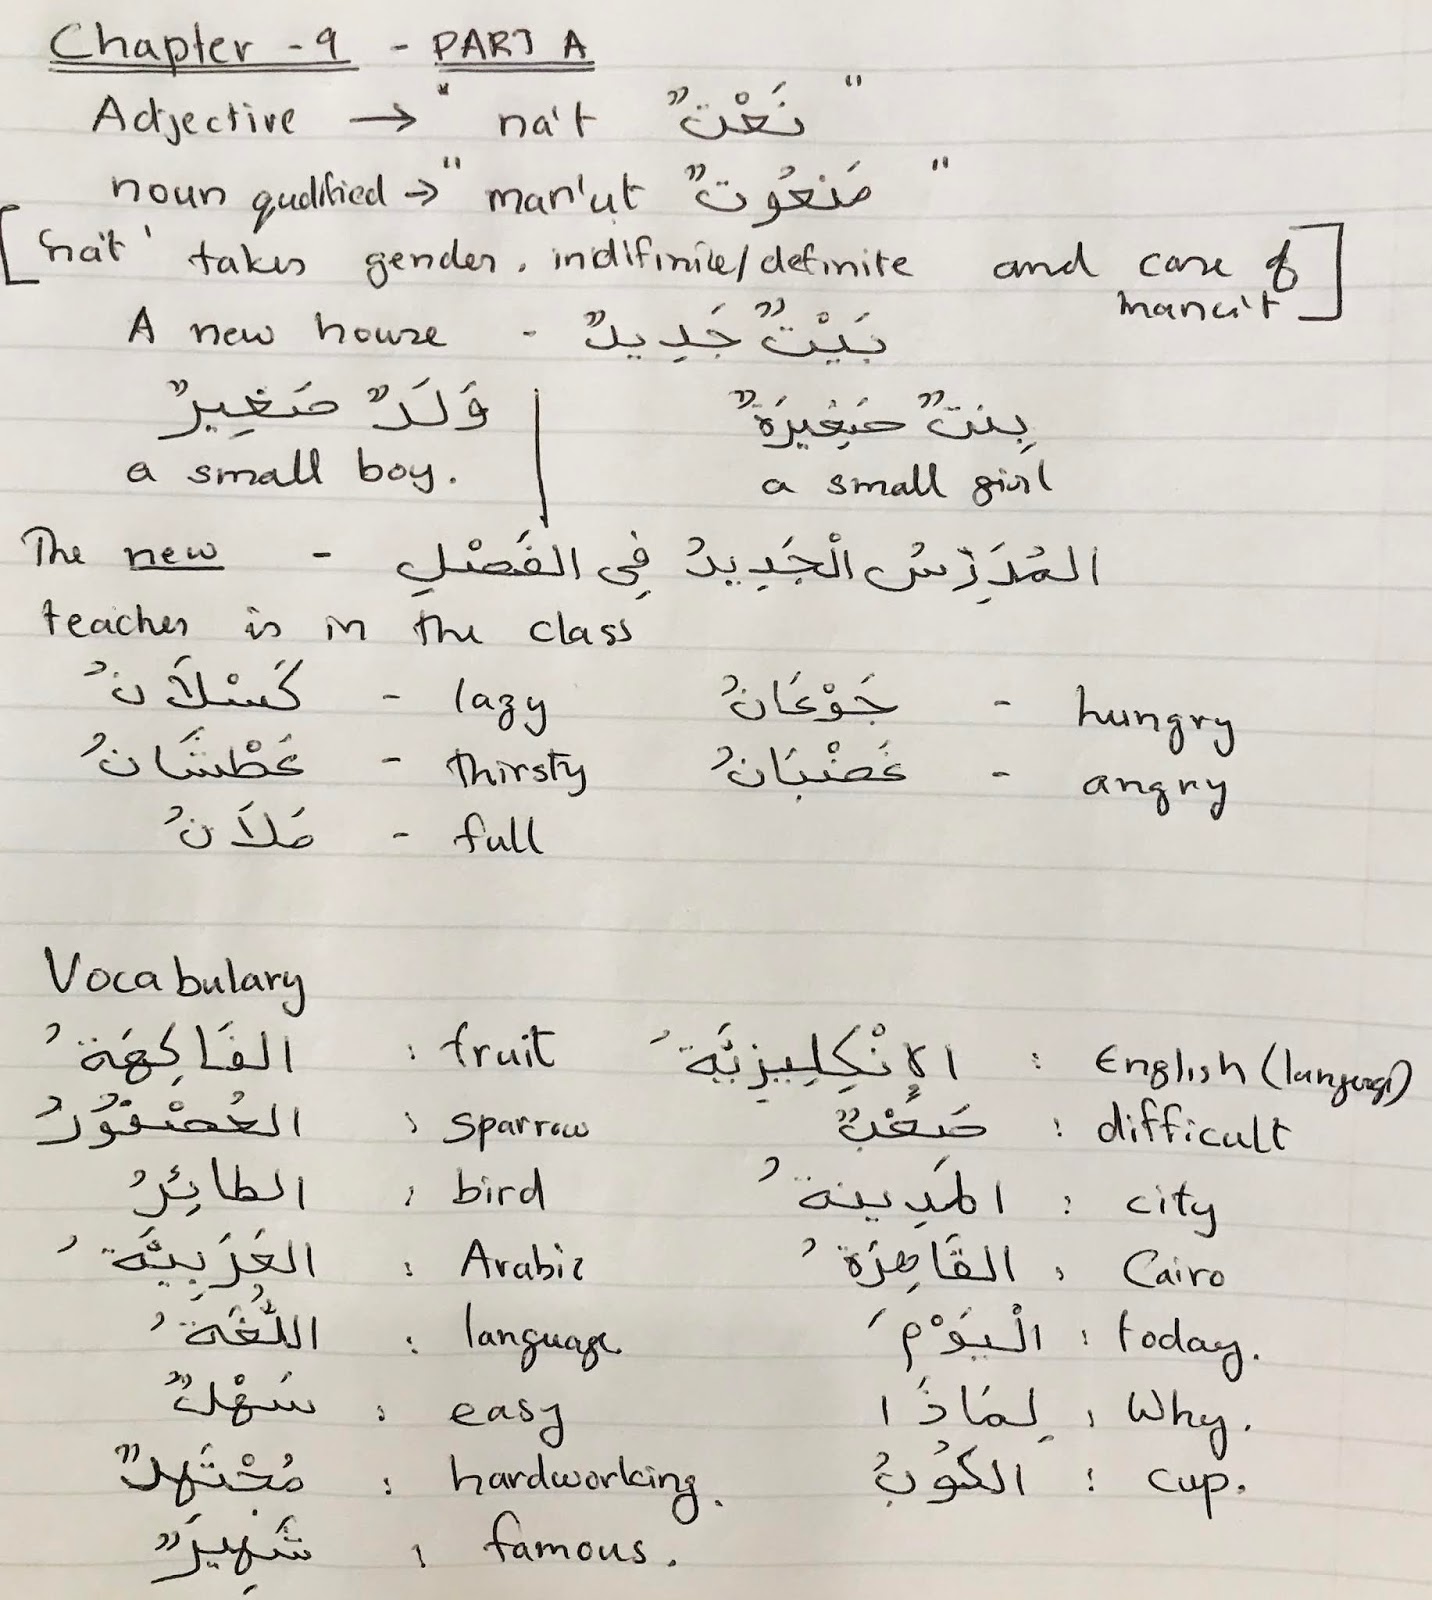 Chapter - 9 - PART A
Adjective → " na't نَعْتٌ "
noun qudified → " man'ut مَنعُوتٌ "
[ 'na't' takes gender, indifinite/definite and case of manu't ]
A new house - بَيْتٌ جَدِيدٌ
وَلَدٌ صَغِيرٌ | بِنتٌ صَغِيرَةٌ
a small boy. | a small girl
The new - المُدَرِّسُ الْجَدِيدُ فِي الفَصْلِ
teacher is in the class
كَسْلَانُ - lazy جَوْعَانُ - hungry
عَطْشَانُ - thirsty غَضْبَانُ - angry
مَلَانُ - full
Vocabulary
الفَاكِهَةُ : fruit الإِنْكِلِيزِيَّةُ : English (language)
العُصْفُورُ : sparrow صَعْبٌ : difficult
الطائِرُ : bird المَدِينةُ : city
العَرَبِيَّةُ : Arabic القَاهِرَةُ : Cairo
اللُّغَةُ : language الْيَوْمَ : today.
سَهْلٌ : easy لِمَاذَا : Why.
مُجْتَهِدٌ : hardworking. الكُوبُ : cup.
شَهِيرٌ : famous.